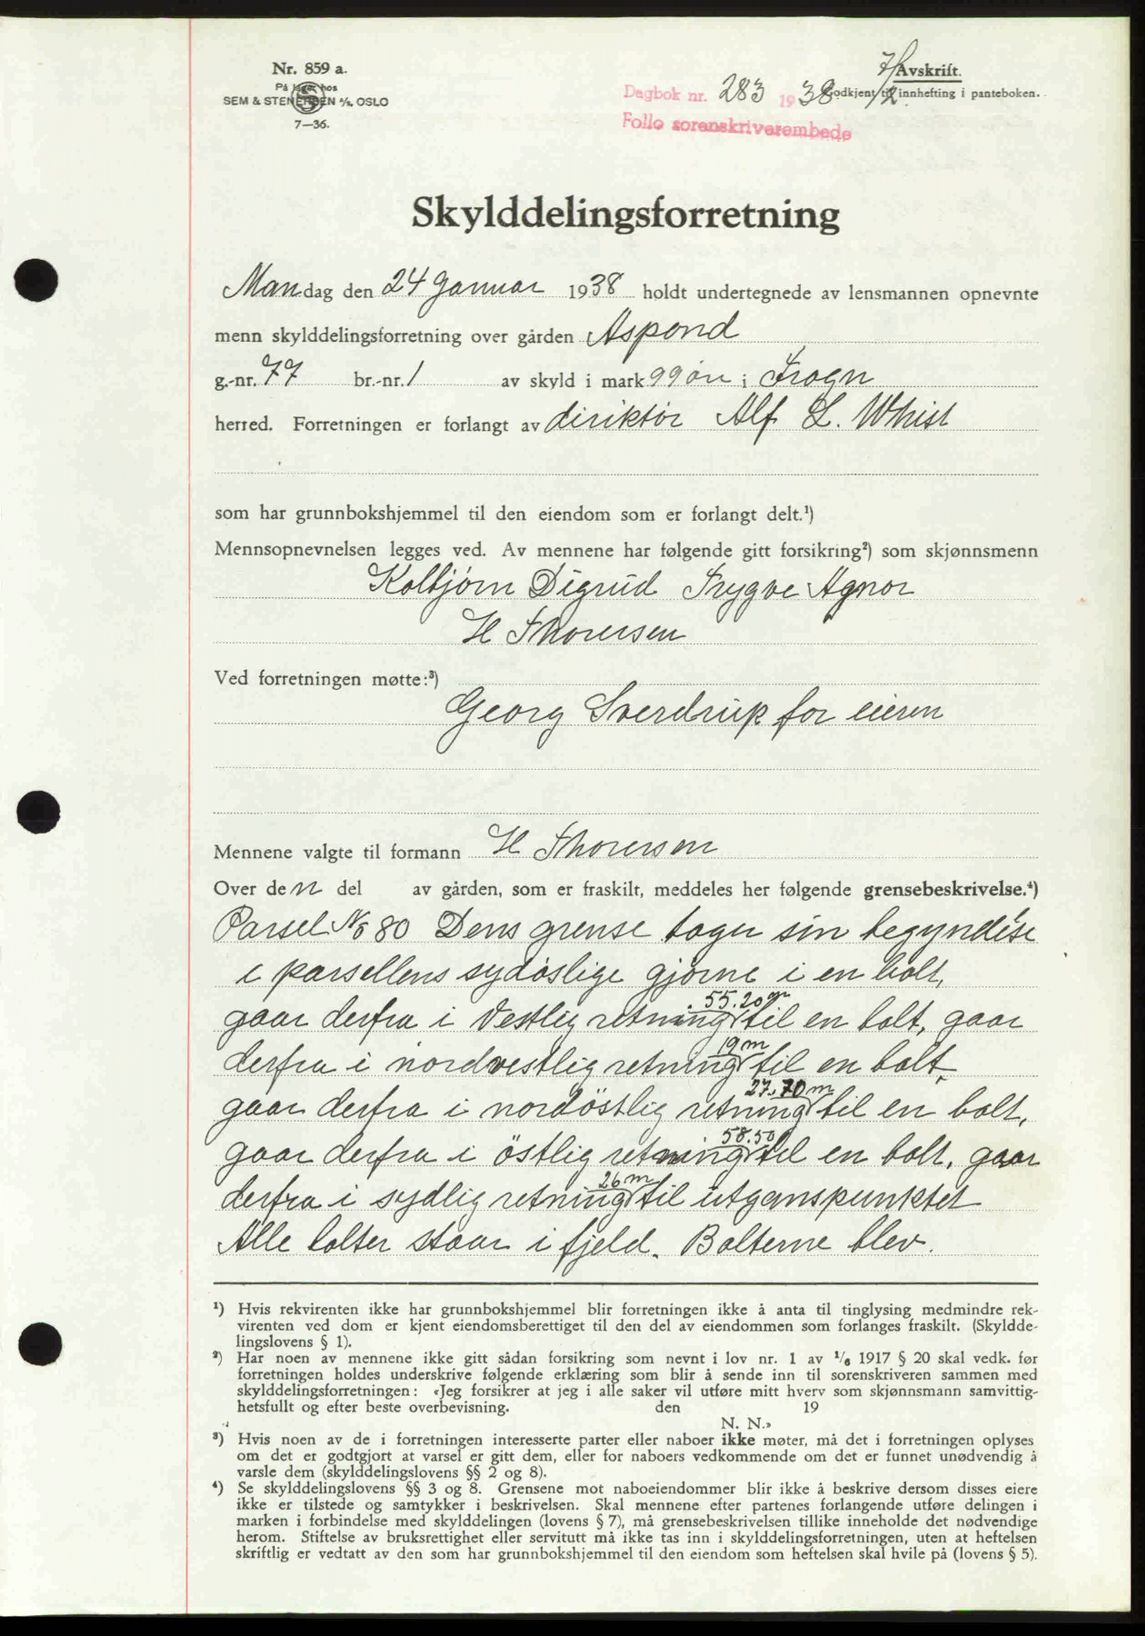 Nr. 859 a.
På lager hos
SEM & STENERSEN A/S, OSLO
7—36.
Avskrift.
Godkjent til innhefting i panteboken.
Dagbok nr. 283 1938 7/2
Follo sorenskriverembede
Skylddelingsforretning
Mandag den 24 Januar 1938 holdt undertegnede av lensmannen opnevnte
menn skylddelingsforretning over gården Aspond
g.-nr. 77 br.-nr. 1 av skyld i mark 99 øre i Frogn
herred. Forretningen er forlangt av diriktør Alf L. Whist
som har grunnbokshjemmel til den eiendom som er forlangt delt.¹)
Mennsopnevnelsen legges ved. Av mennene har følgende gitt forsikring²) som skjønnsmenn
Kolbjørn Digrud Trygve Agnor
H Thoresen
Ved forretningen møtte:³)
Georg Sverdrup for eieren
Mennene valgte til formann H Thoresen
Over den del av gården, som er fraskilt, meddeles her følgende grensebeskrivelse.⁴)
Parsel No 80 Dens grense tager sin begyndelse
i parsellens sydöslige hjørne i en bolt,
gaar derfra i Vestlig retning 55.20 m til en bolt, gaar
derfra i nordvestlig retning 19 m til en bolt,
gaar derfra i nordöstlig retning 27.70 m til en bolt,
gaar derfra i östlig retning 58.50 til en bolt, gaar
derfra i sydlig retning 26 m til utganspunktet
Alle bolter staar i fjeld. Bolterne blev.
¹) Hvis rekvirenten ikke har grunnbokshjemmel blir forretningen ikke å anta til tinglysing medmindre rek-
virenten ved dom er kjent eiendomsberettiget til den del av eiendommen som forlanges fraskilt. (Skyldde-
lingslovens § 1).
²) Har noen av mennene ikke gitt sådan forsikring som nevnt i lov nr. 1 av ¹/₆ 1917 § 20 skal vedk. før
forretningen holdes underskrive følgende erklæring som blir å sende inn til sorenskriveren sammen med
skylddelingsforretningen: «Jeg forsikrer at jeg i alle saker vil utføre mitt hverv som skjønnsmann samvittig-
hetsfullt og efter beste overbevisning. den 19
N. N.»
³) Hvis noen av de i forretningen interesserte parter eller naboer ikke møter, må det i forretningen oplyses
om det er godtgjort at varsel er gitt dem, eller for naboers vedkommende om det er funnet unødvendig å
varsle dem (skylddelingslovens §§ 2 og 8).
⁴) Se skylddelingslovens §§ 3 og 8. Grensene mot naboeiendommer blir ikke å beskrive dersom disses eiere
ikke er tilstede og samtykker i beskrivelsen. Skal mennene efter partenes forlangende utføre delingen i
marken i forbindelse med skylddelingen (lovens § 7), må grensebeskrivelsen tillike inneholde det nødvendige
herom. Stiftelse av bruksrettighet eller servitutt må ikke tas inn i skylddelingsforretningen, uten at heftelsen
skriftlig er vedtatt av den som har grunnbokshjemmel til den eiendom som heftelsen skal hvile på (lovens § 5).